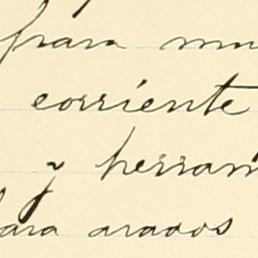 para mu
corriente
y herram
para arados